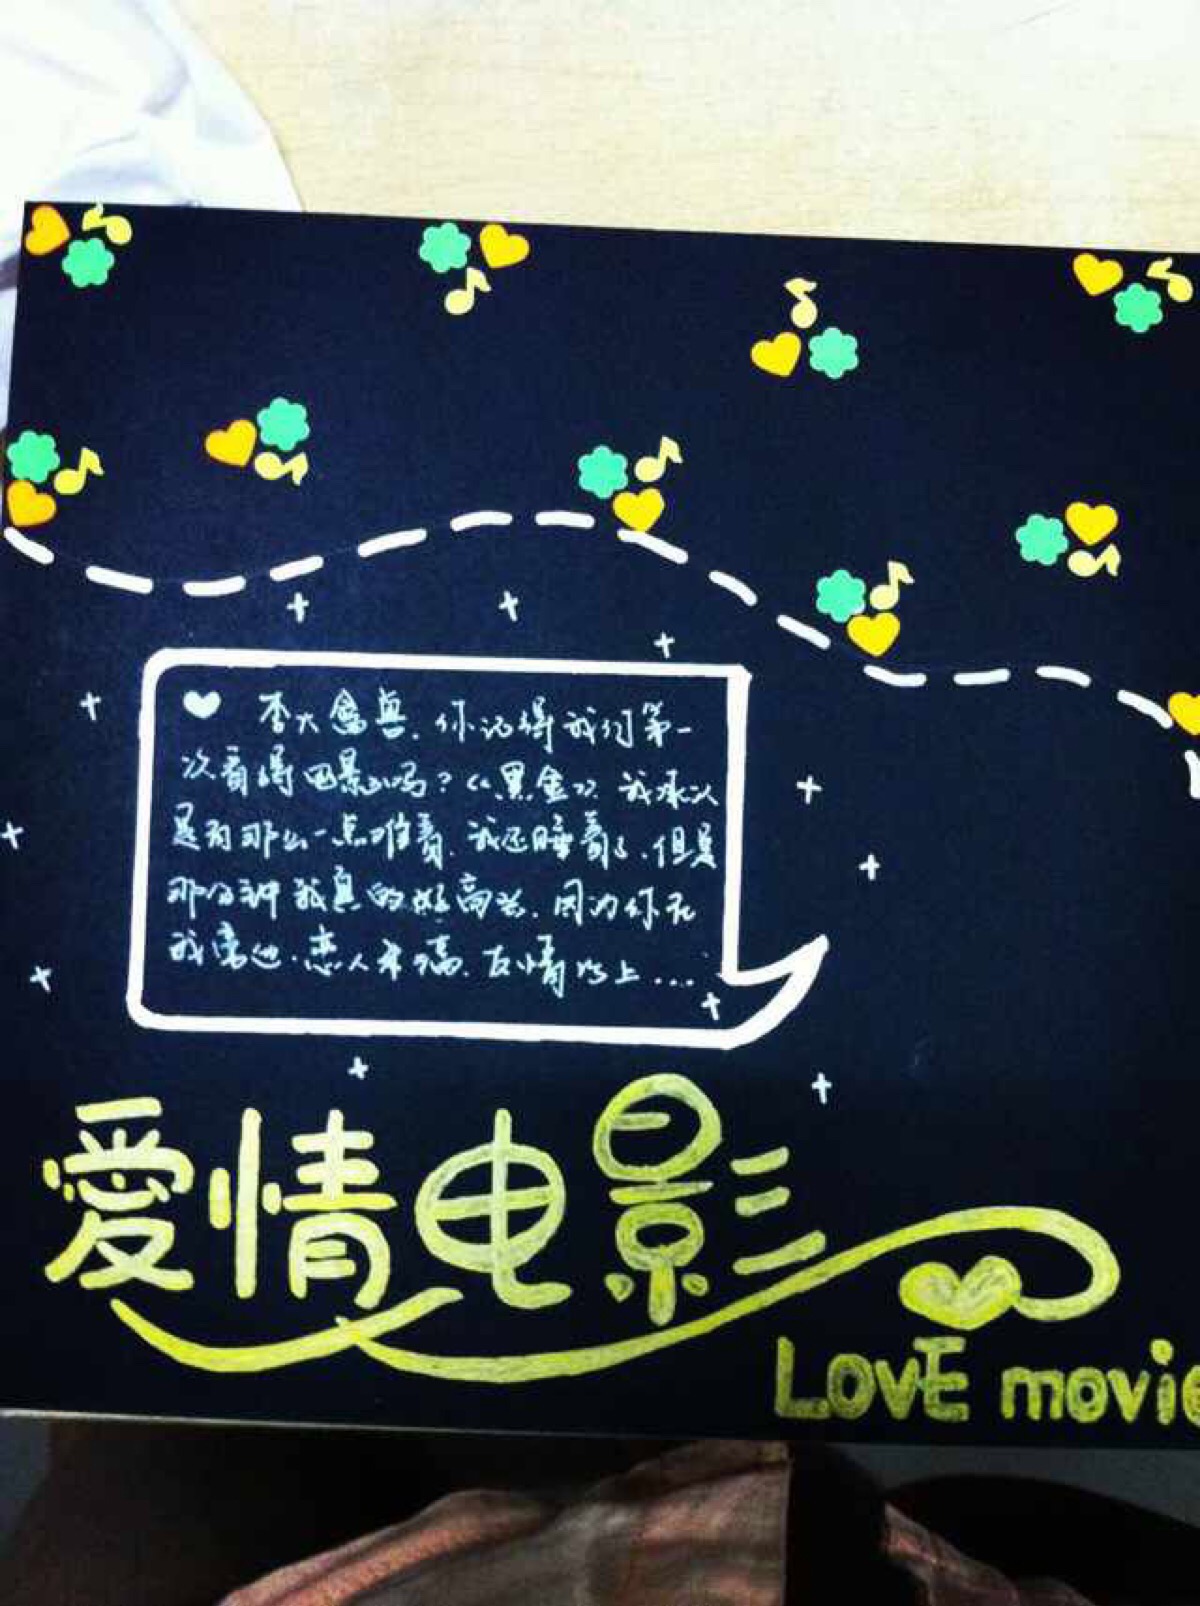 李大禽兽，你记得我们第一
次看得电影吗？《黑金》，我承认
是有那么一点难看，我还睡着了，但是
那分钟我真的好高兴，因为你在
我旁边．恋人未满，友情以上....
爱情电影
LOVE movie